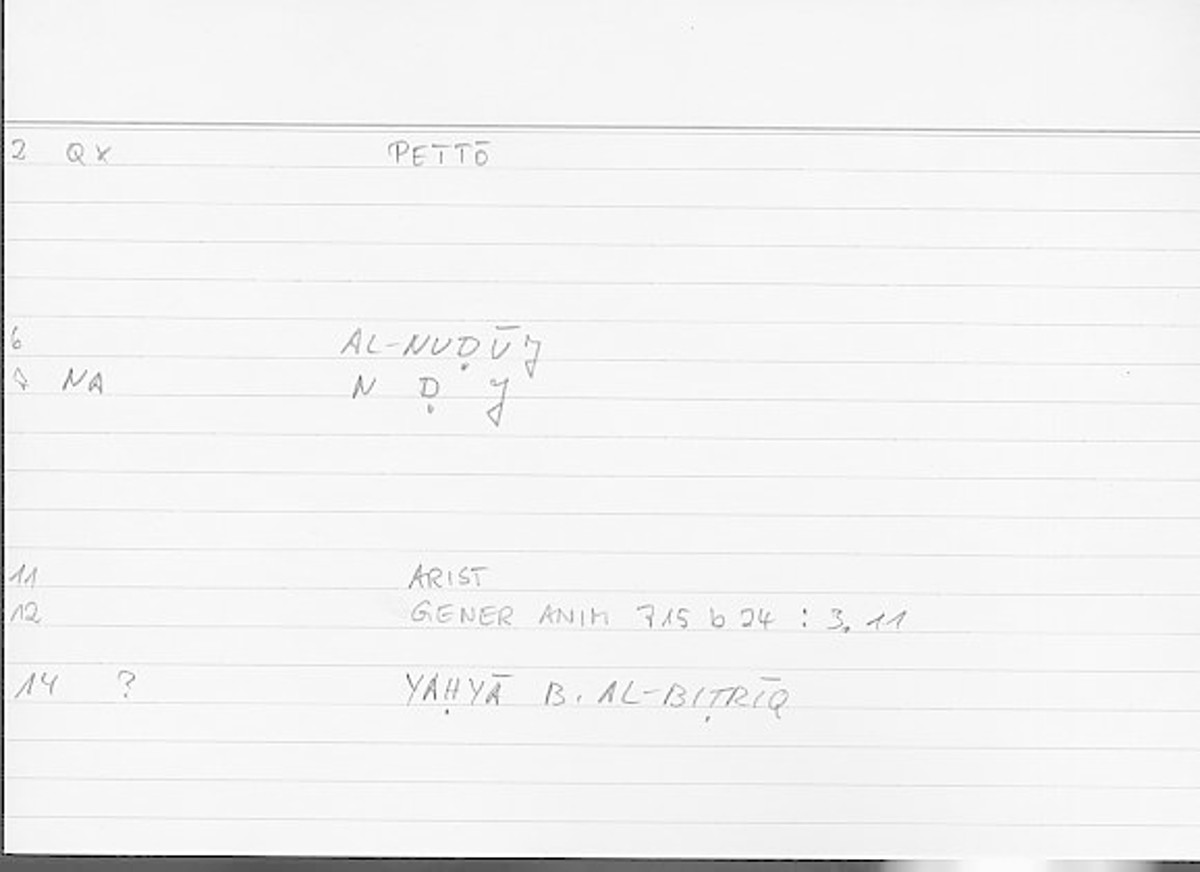 2 QX PETTŌ
6 AL-NUḌŪǦ
NA N Ḍ Ǧ
11 ARIST
12 GENER ANIM 715 b 24 : 3,11
14 ? YAḤYĀ B. AL-BIṬRĪQ